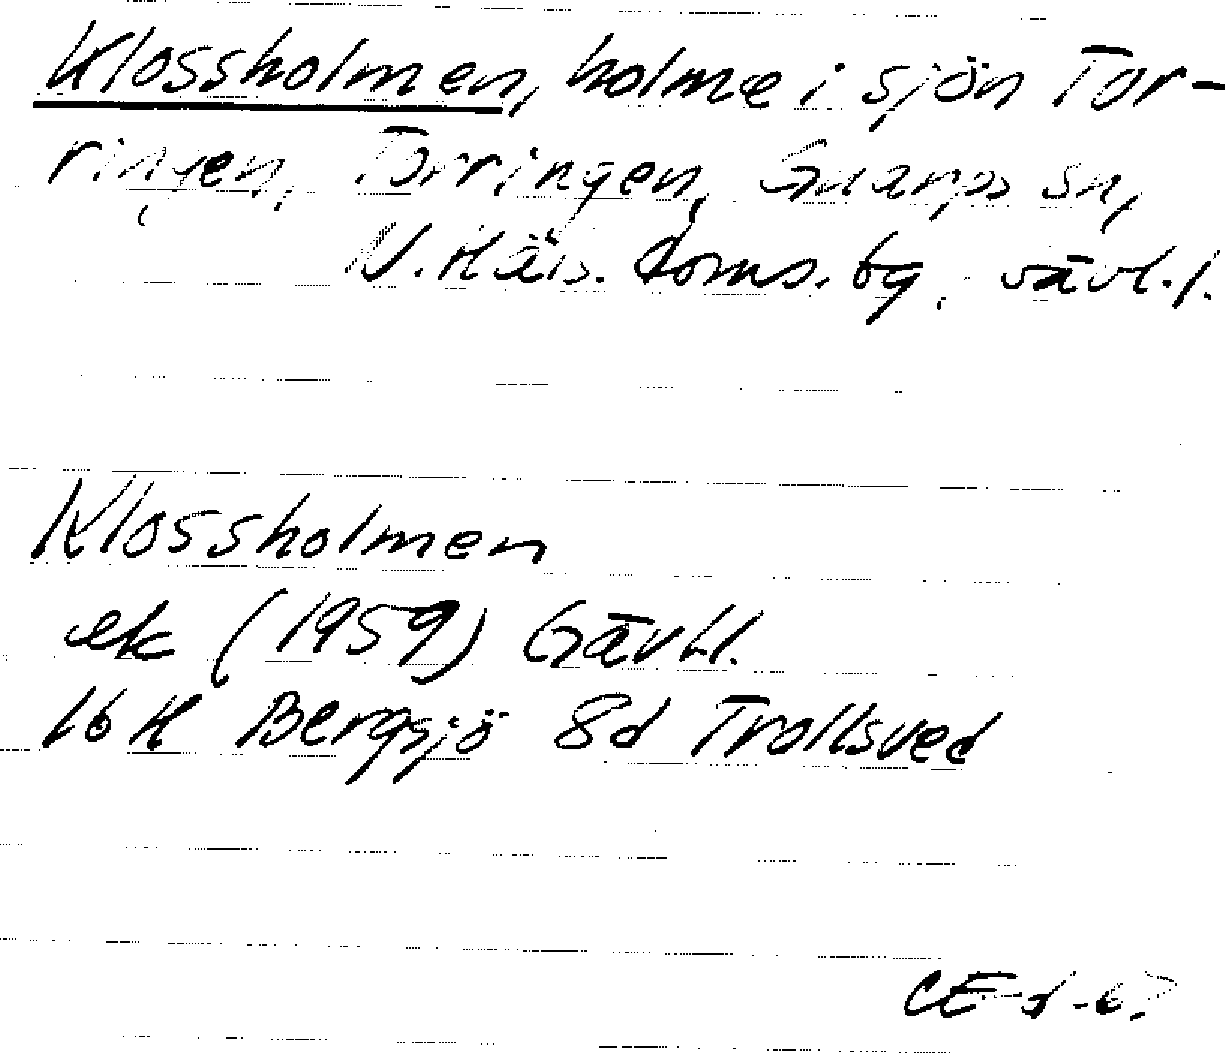 Klossholmen, holme i sjön Tor-
ringen, Torringen, Gnarps sn,
N. Häls. doms. bg, Gävl. l.
Klossholmen
ek (1959) Gävl l.
16 H Bergsjö 8d Trollsved